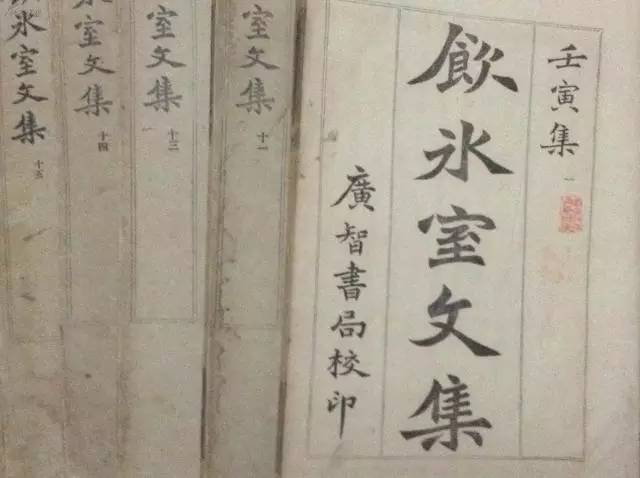 壬寅集 一
飲氷室文集
廣智書局校印
室文集 十一
室文集 十三
氷室文集 十四
飲氷室文集 十五